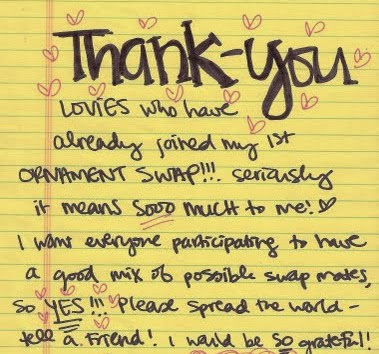 Thank-you
LOVIES who have
already joined my 1st
ORNAMENT SWAP!!! seriously
it means sooo much to me!
I want everyone participating to have
a good mix of possible swap mates,
so YES!!! Please spread the world -
tell a friend! I would be so grateful!